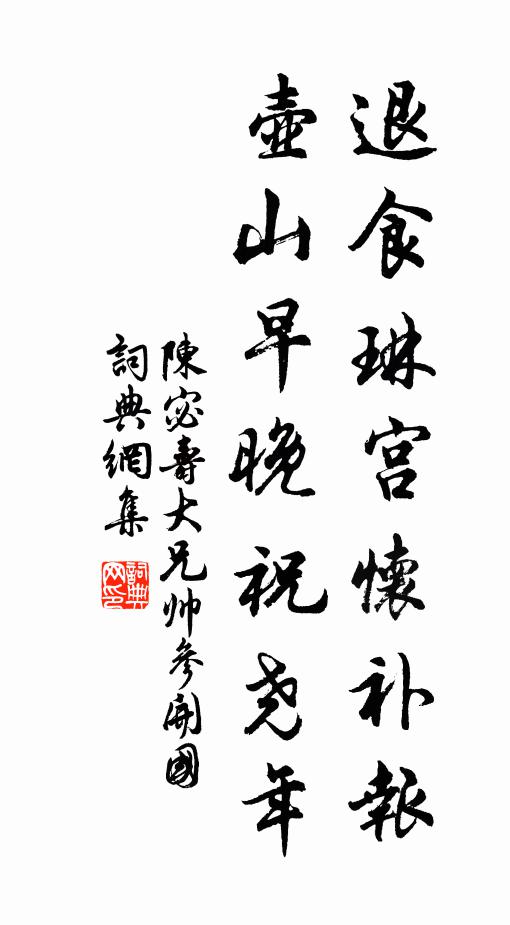 退食琳宫懷补報
壺山早晚祝尧年
陳宓壽大兄帅參開國
詞典網集
詞典网印